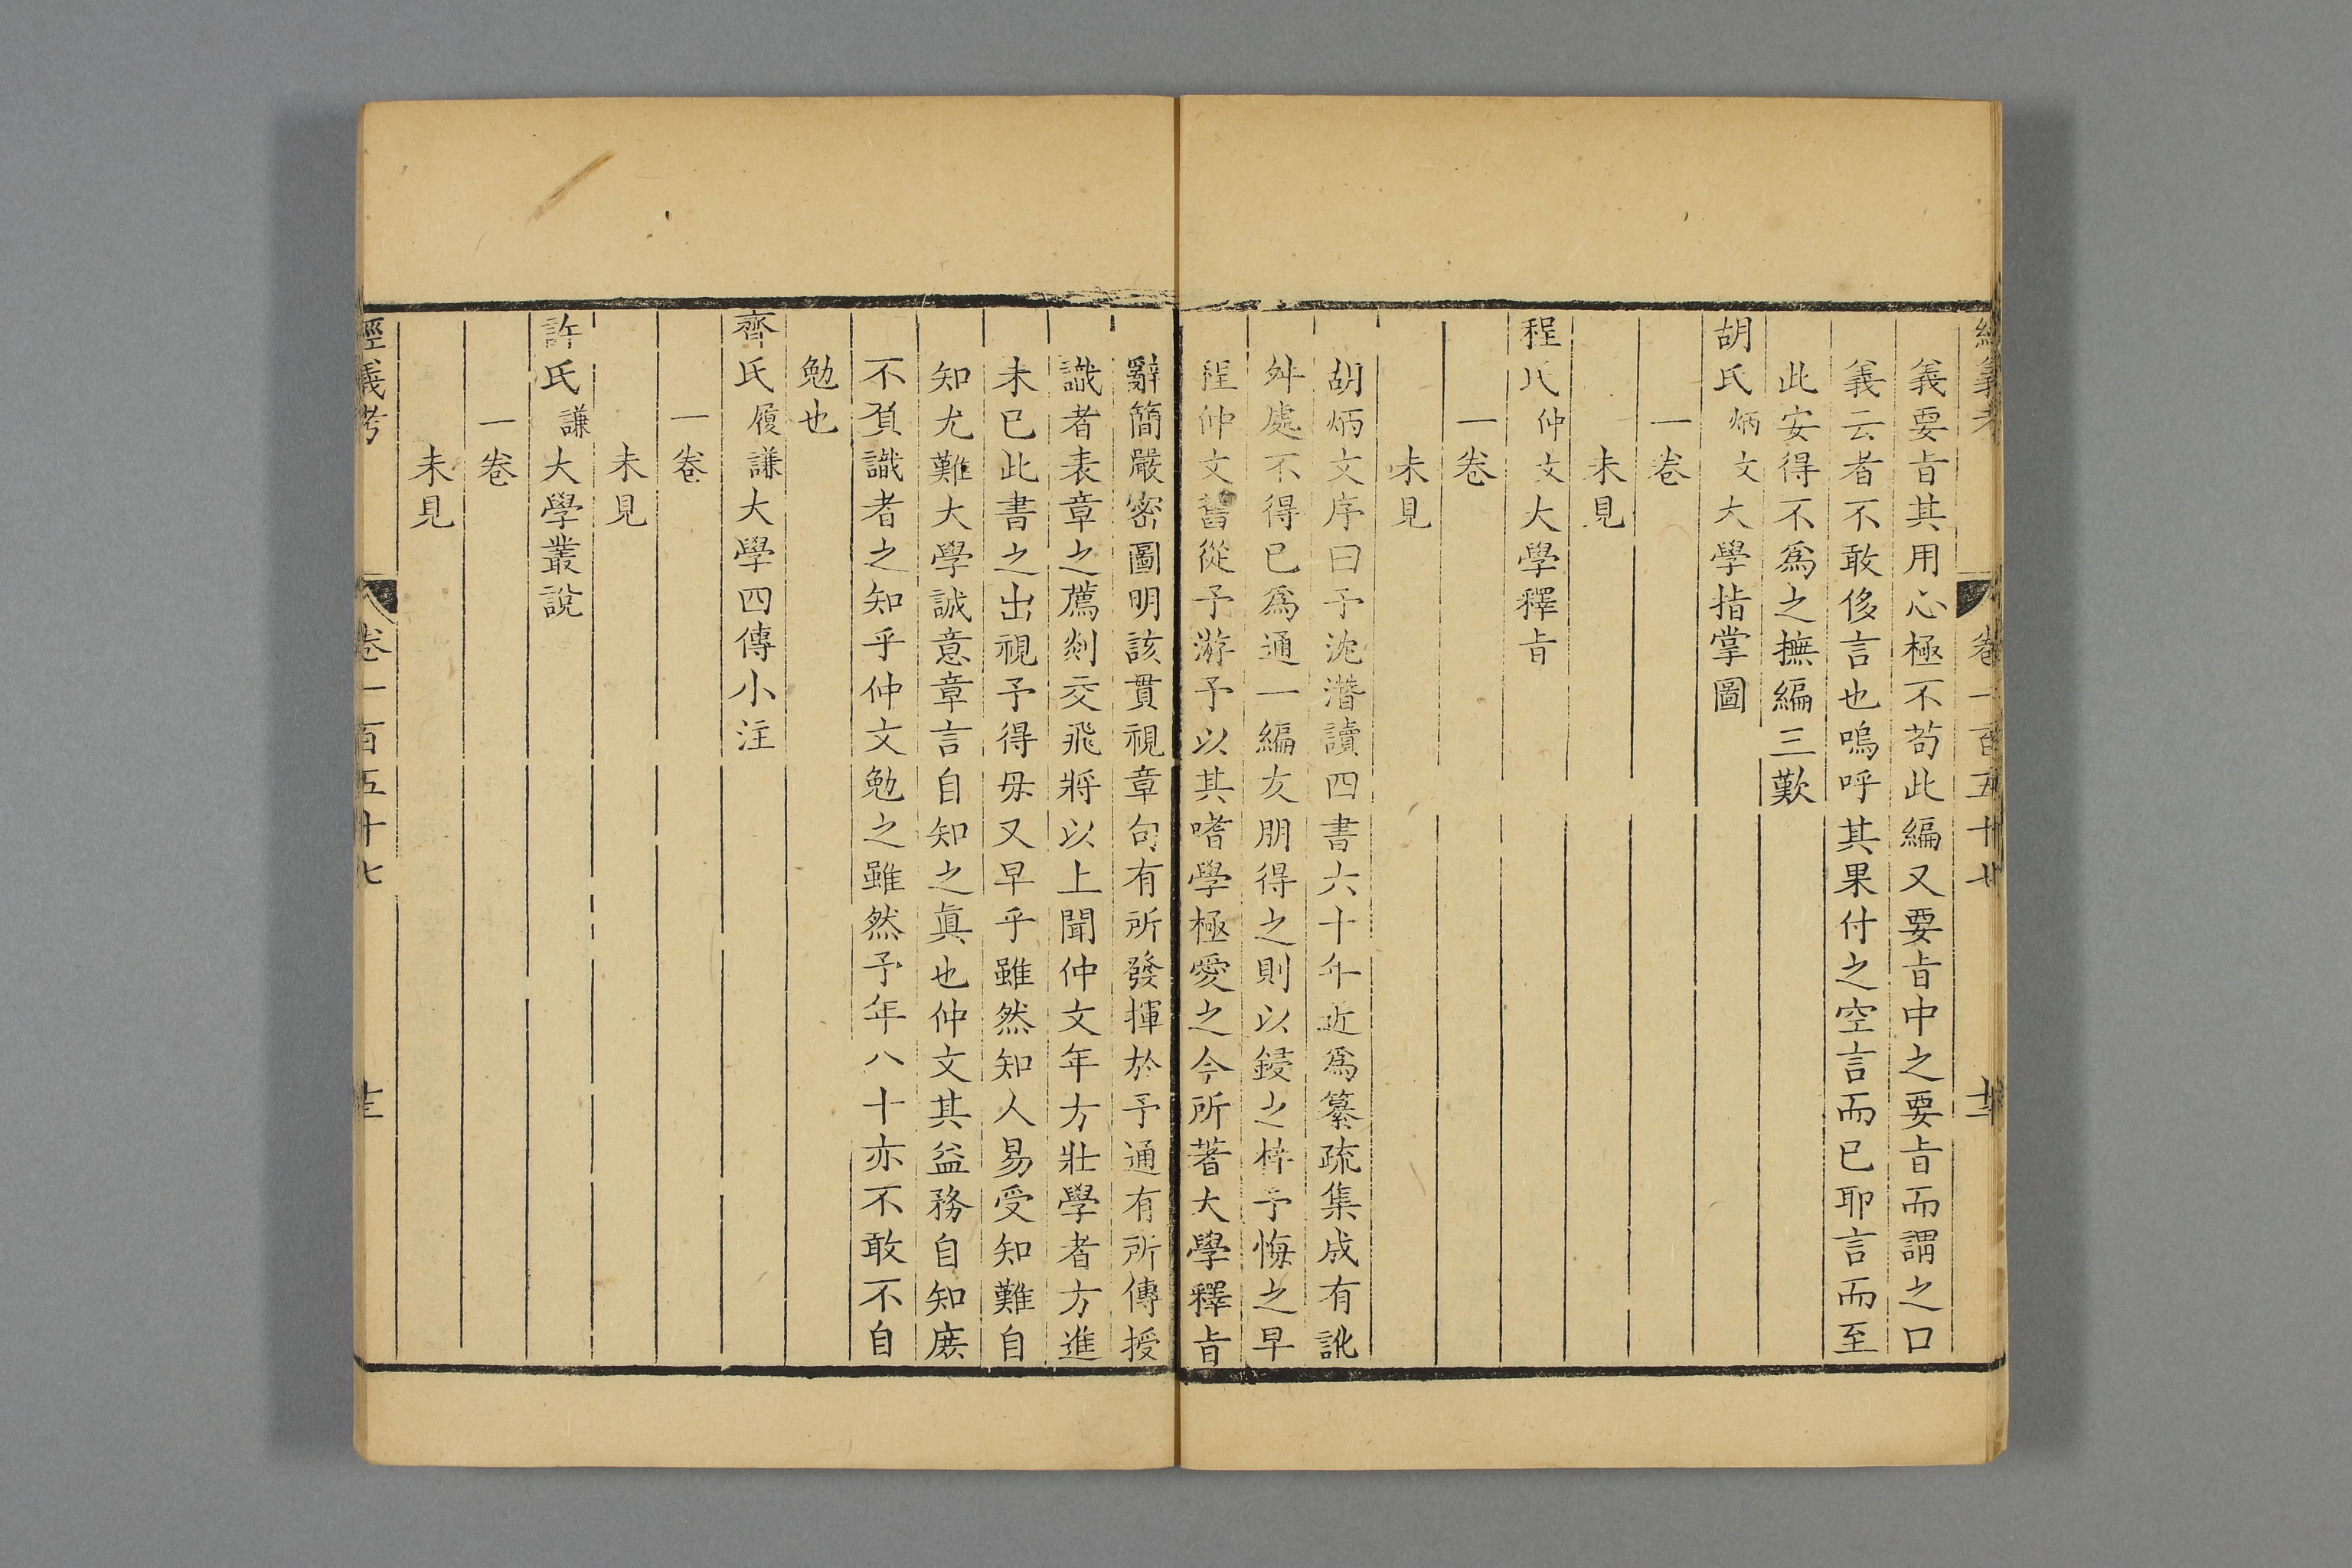 經義考 卷一百五十七 十二
義要旨其用心極不苟此編又要旨中之要旨而謂之口
義云者不敢侈言也嗚呼其果付之空言而已耶言而至
此安得不爲之撫編三歎
胡氏炳文大學指掌圖
一卷
未見
程氏仲文大學釋旨
一卷
未見
胡炳文序曰予沈潛讀四書六十年近爲纂疏集成有訛
舛處不得已爲通一編友朋得之則以鋟之梓予悔之早
程仲文舊從予游予以其嗜學極愛之今所著大學釋旨
辭簡嚴密圖明該貫視章句有所發揮於予通有所傳授
識者表章之薦剡交飛將以上聞仲文年方壯學者方進
未已此書之出視予得毋又早乎雖然知人易受知難自
知尤難大學誠意章言自知之眞也仲文其益務自知庶
不負識者之知乎仲文勉之雖然予年八十亦不敢不自
勉也
齊氏履謙大學四傳小注
一卷
未見
許氏謙大學叢說
一卷
未見
經義考 卷一百五十七 十三